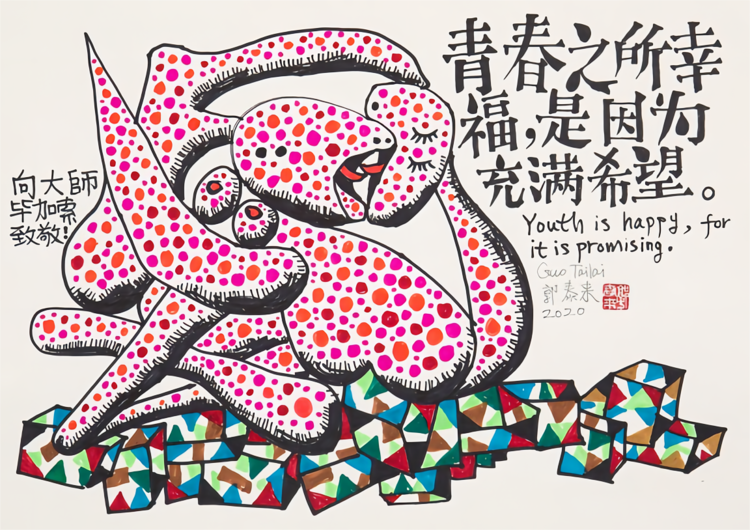 向大師
毕加索
致敬!
青春之所幸
福,是因为
充满希望。
Youth is happy, for
it is promising.
Guo Tailai
郭泰来
2020